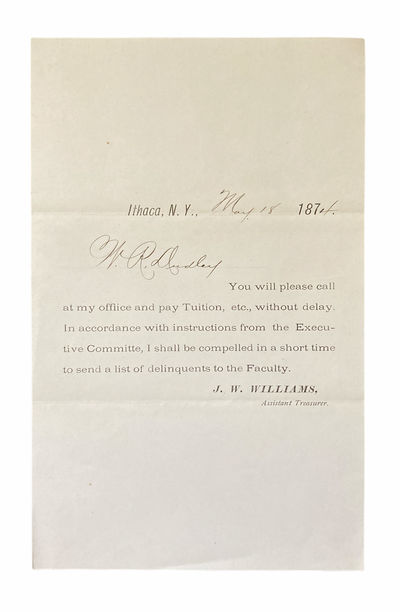 Ithaca, N. Y., May 18 1874.
W. R. Dudley
You will please call
at my office and pay Tuition, etc., without delay.
In accordance with instructions from the Execu-
tive Committe, I shall be compelled in a short time
to send a list of delinquents to the Faculty.
J. W. WILLIAMS,
Assistant Treasurer.